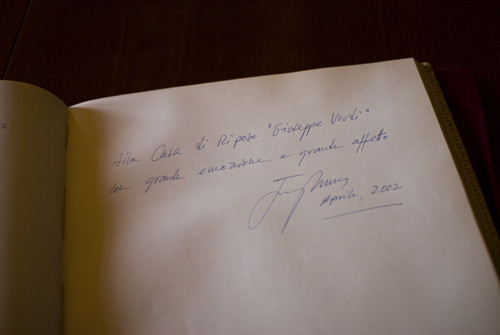 Alla Casa di Riposo "Giuseppe Verdi"
con grande emozione e grande affetto
Aprile, 2002